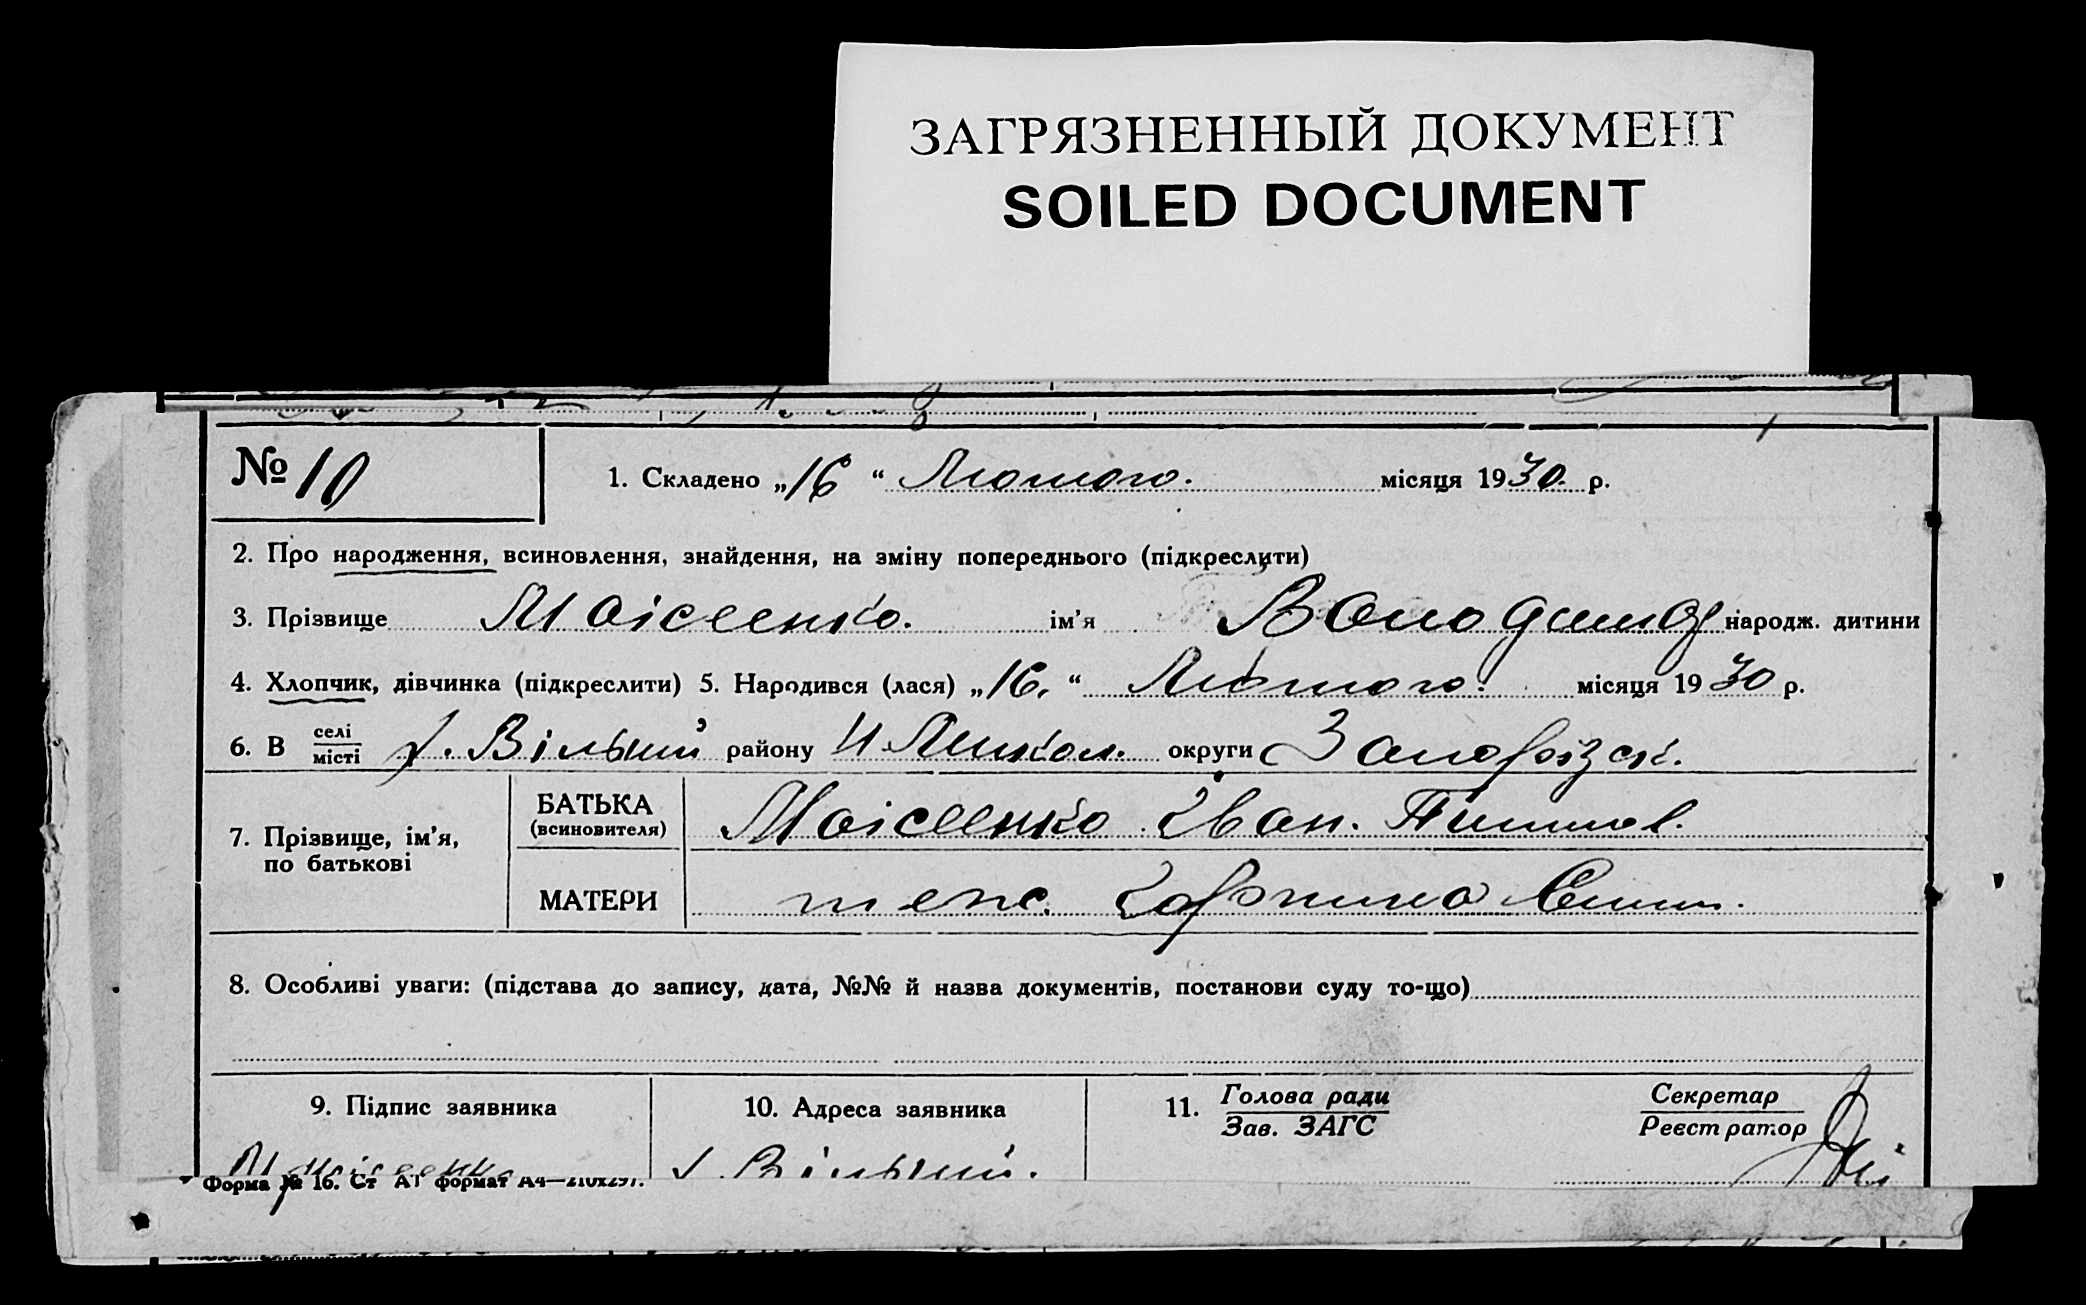 ЗАГРЯЗНЕННЫЙ ДОКУМЕНТ
SOILED DOCUMENT
№ 10
1. Складено „16“ Лютого. місяця 1930. р.
2. Про народження, всиновлення, знайдення, на зміну попереднього (підкреслити)
3. Прізвище Моісеенко. ім'я Володимир народж. дитини
4. Хлопчик, дівчинка (підкреслити) 5. Народився (лася) „16.“ Лютого. місяця 1930 р.
6. В селі / місті х. Вільний району округи Запорізьк.
7. Прізвище, ім'я, по батькові
БАТЬКА (всиновителя) Моісеенко Іван.
МАТЕРИ
8. Особливі уваги: (підстава до запису, дата, №№ й назва документів, постанови суду то-що)
9. Підпис заявника
10. Адреса заявника
11. Голова ради / Зав. ЗАГС
Секретар / Реєстратор
Моісеенко
х. Вільний.
Форма № 16. Ст А1 формат А4—210x297.